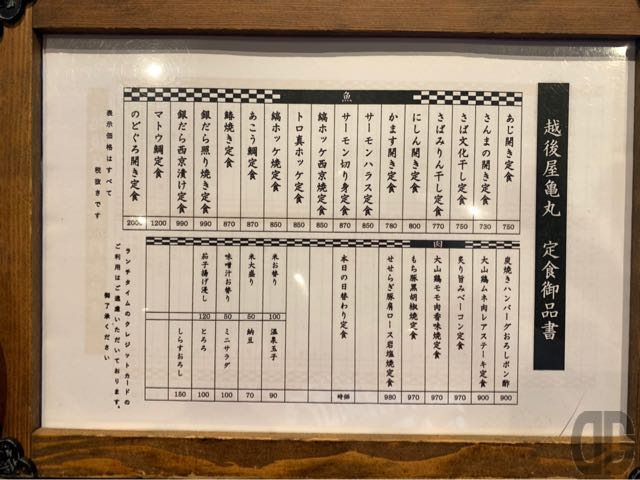 越後屋亀丸 定食御品書
魚
あじ開き定食 750
さんまの開き定食 730
さば文化干し定食 750
さばみりん干し定食 770
にしん開き定食 800
かます開き定食 780
サーモンハラス定食 850
サーモン切り身定食 870
縞ホッケ西京焼定食 850
トロ真ホッケ定食 850
縞ホッケ定食 850
あこう鯛定食 870
鰆焼き定食 870
銀だら照り焼き定食 990
銀だら西京漬け定食 990
マトウ鯛定食 1200
のどぐろ開き定食 2000
表示価格はすべて
税抜きです
肉
炭焼きハンバーグおろしポン酢 900
大山鶏ムネ肉レアステーキ定食 900
炙り旨みベーコン定食 970
大山鶏モモ肉香味焼定食 970
もち豚黒胡椒焼定食 970
せせらぎ豚肩ロース岩塩焼定食 980
本日の日替わり定食 時価
米お替り 100
米大盛り 50
味噌汁お替り 50
茄子揚げ浸し 120
温泉玉子 90
納豆 70
ミニサラダ 100
とろろ 100
しらすおろし 150
ランチタイムのクレジットカードの
ご利用はご遠慮いただいております。
御了承ください